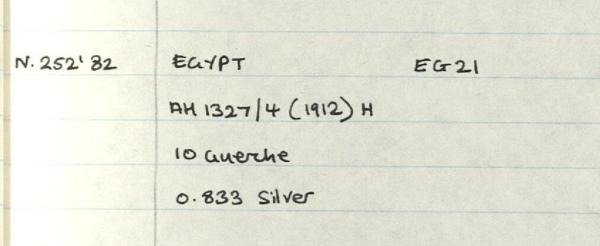 N. 252'82 EGYPT EG21
AH 1327/4 (1912) H
10 Guerche
0.833 Silver